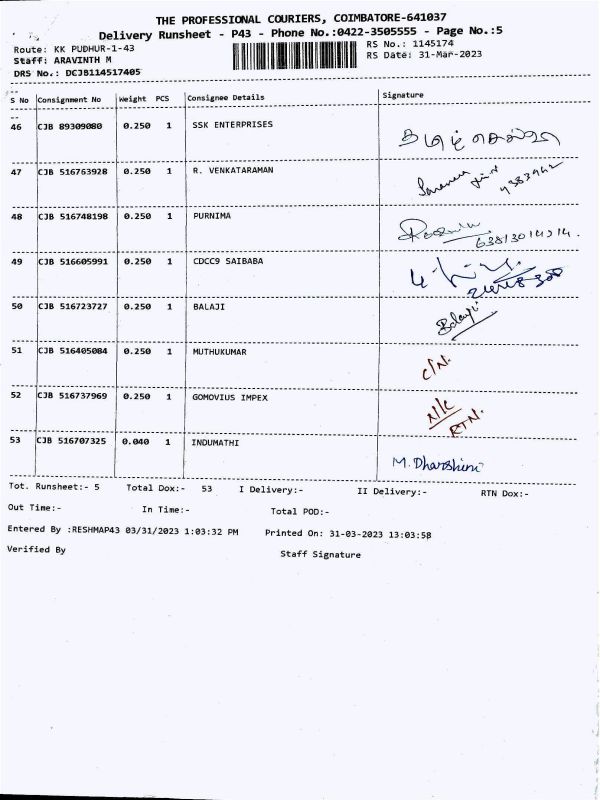 THE PROFESSIONAL COURIERS, COIMBATORE-641037
Delivery Runsheet - P43 - Phone No.:0422-3505555 - Page No.:5
Route: KK PUDHUR-1-43
RS No.: 1145174
Staff: ARAVINTH M
RS Date: 31-Mar-2023
DRS No.: DCJB114517405
S No Consignment No Weight PCS Consignee Details Signature
46 CJB 89309080 0.250 1 SSK ENTERPRISES
47 CJB 516763928 0.250 1 R. VENKATARAMAN
48 CJB 516748198 0.250 1 PURNIMA
49 CJB 516605991 0.250 1 CDCC9 SAIBABA
50 CJB 516723727 0.250 1 BALAJI Balaji
51 CJB 516405084 0.250 1 MUTHUKUMAR C/N.
52 CJB 516737969 0.250 1 GOMOVIUS IMPEX N/C
RTN.
53 CJB 516707325 0.040 1 INDUMATHI M. Dharshini
Tot. Runsheet:- 5 Total Dox:- 53 I Delivery:- II Delivery:- RTN Dox:-
Out Time:- In Time:- Total POD:-
Entered By :RESHMAP43 03/31/2023 1:03:32 PM Printed On: 31-03-2023 13:03:58
Verified By Staff Signature